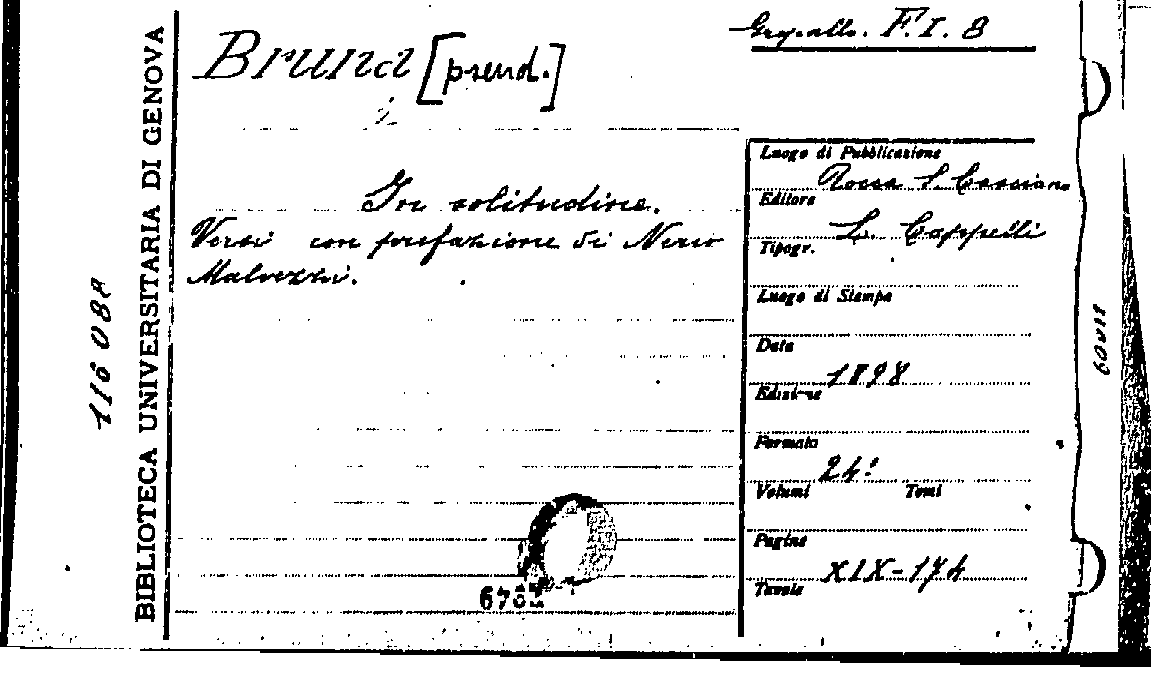 Gropallo. F.I. 8
Bruna [pseud.]
BIBLIOTECA UNIVERSITARIA DI GENOVA
116088
In solitudine.
Versi con prefazione di Nerio
Malvezzi.
Luogo di Pubblicazione
Rocca S. Casciano
Editore
L. Cappelli
Tipogr.
Luogo di Stampa
Data
1898
Edizione
Formato
24°
Volumi Tomi
Pagine
XIX-174
Tavole